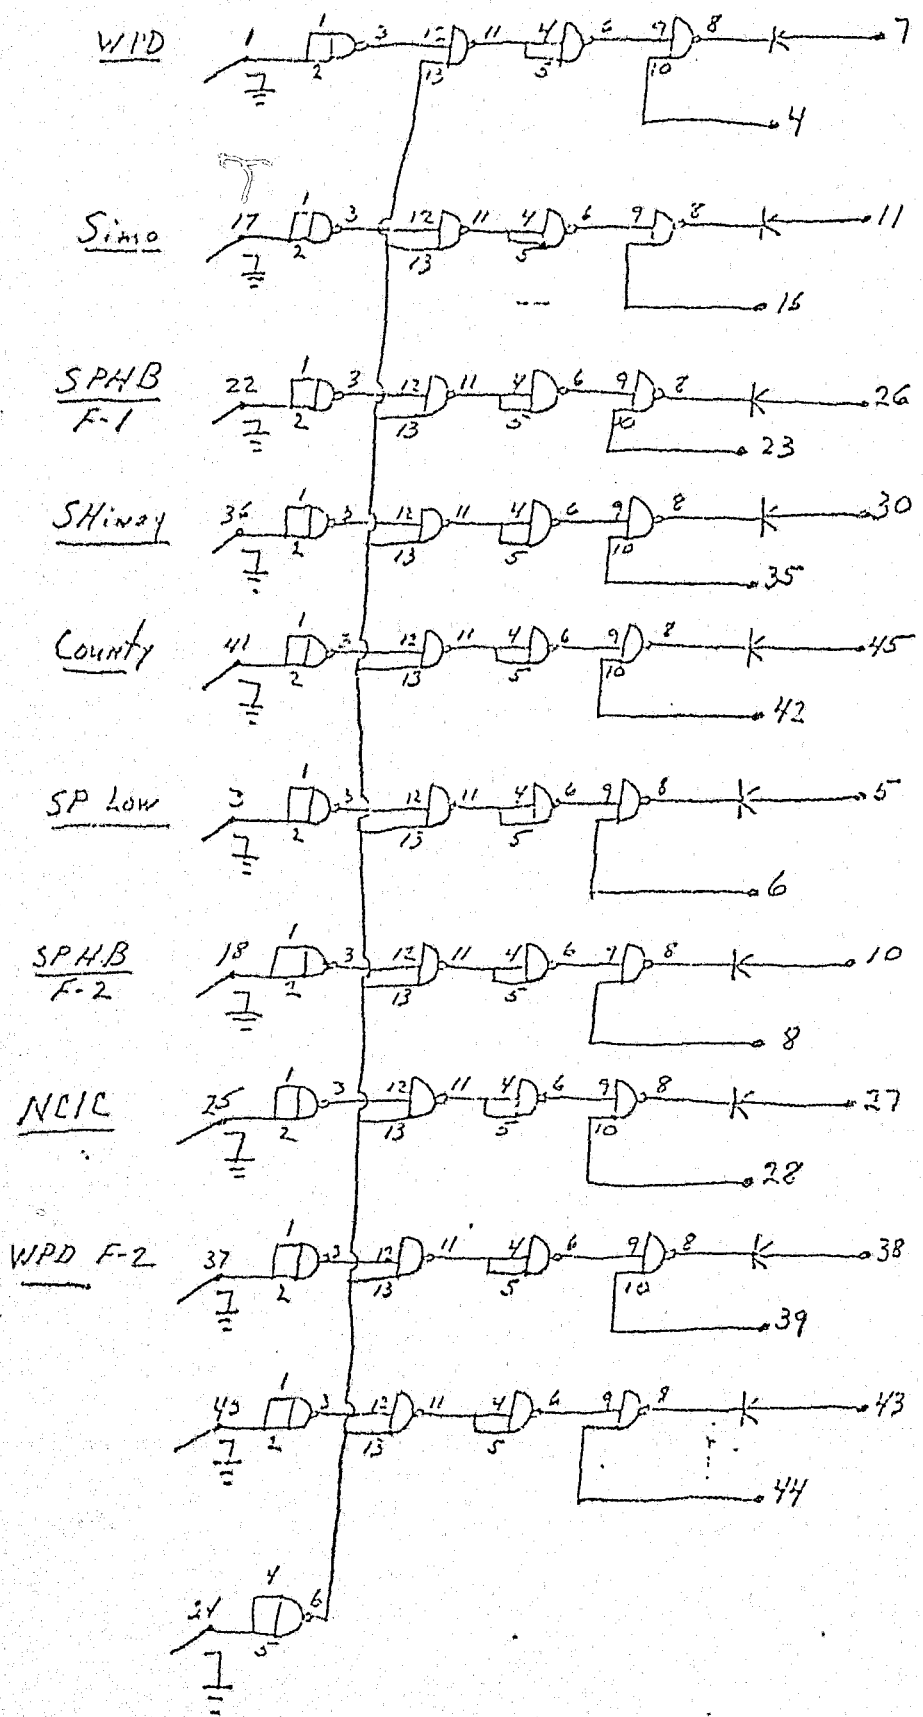 WPD 1 1 2 3 12 13 11 4 5 6 9 10 8 7
4
Simo 17 1 2 3 12 13 11 4 5 6 9 8 11
16
SPHB 22 1 2 3 12 13 11 4 5 6 9 10 8 26
F-1
23
SHiway 36 1 2 3 12 13 11 4 5 6 9 10 8 30
35
County 41 1 2 3 12 13 11 4 5 6 9 10 8 45
42
SP Low 3 1 2 3 12 13 11 4 5 6 9 8 5
6
SPHB 18 1 2 3 12 13 11 4 5 6 9 8 10
F-2
8
NCIC 25 1 2 3 12 13 11 4 5 6 9 10 8 27
28
WPD F-2 37 1 2 3 12 13 11 4 5 6 9 10 8 38
39
1 2 3 12 13 11 4 5 6 9 8 43
44
24 4 5 6